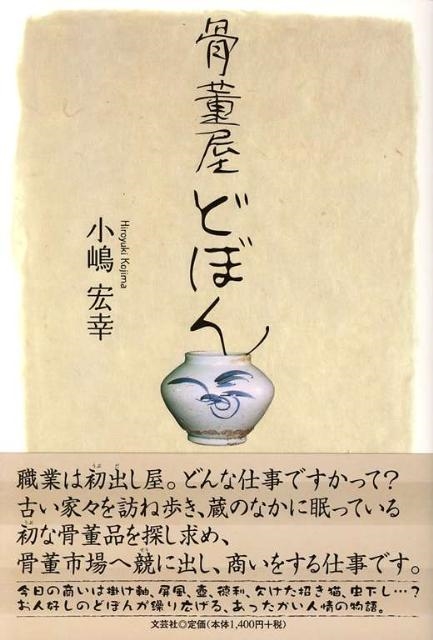 骨董屋
どぼん
小嶋 宏幸
Hiroyuki Kojima
職業は初出し屋。どんな仕事ですかって？
うぶだ
古い家々を訪ね歩き、蔵のなかに眠っている
初な骨董品を探し求め、
うぶ
骨董市場へ競に出し、商いをする仕事です。
せり
今日の商いは掛け軸、屏風、壺、徳利、欠けた招き猫、虫下し…？
お人好しのどぼんが繰り広げる、あったかい人情の物語。
文芸社◎定価（本体1,400円＋税）